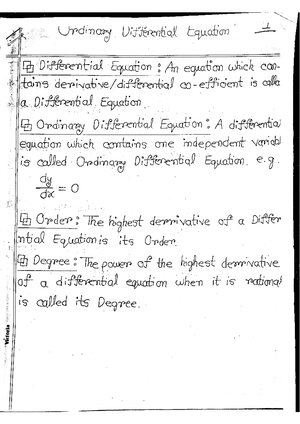 Ordinary Differential Equation 1
Differential Equation : An equation which con-
tains derivative/differential co-efficient is calle
a Differential Equation.
Ordinary Differential Equation : A differentia
equation which contains one independent variabl
is called Ordinary Differential Equation. e.g.
dy/dx = 0
Order : The highest derrivative of a Differ
ntial Equation is its Order.
Degree : The power of the highest derrivative
of a differential equation when it is rational
is called its Degree.